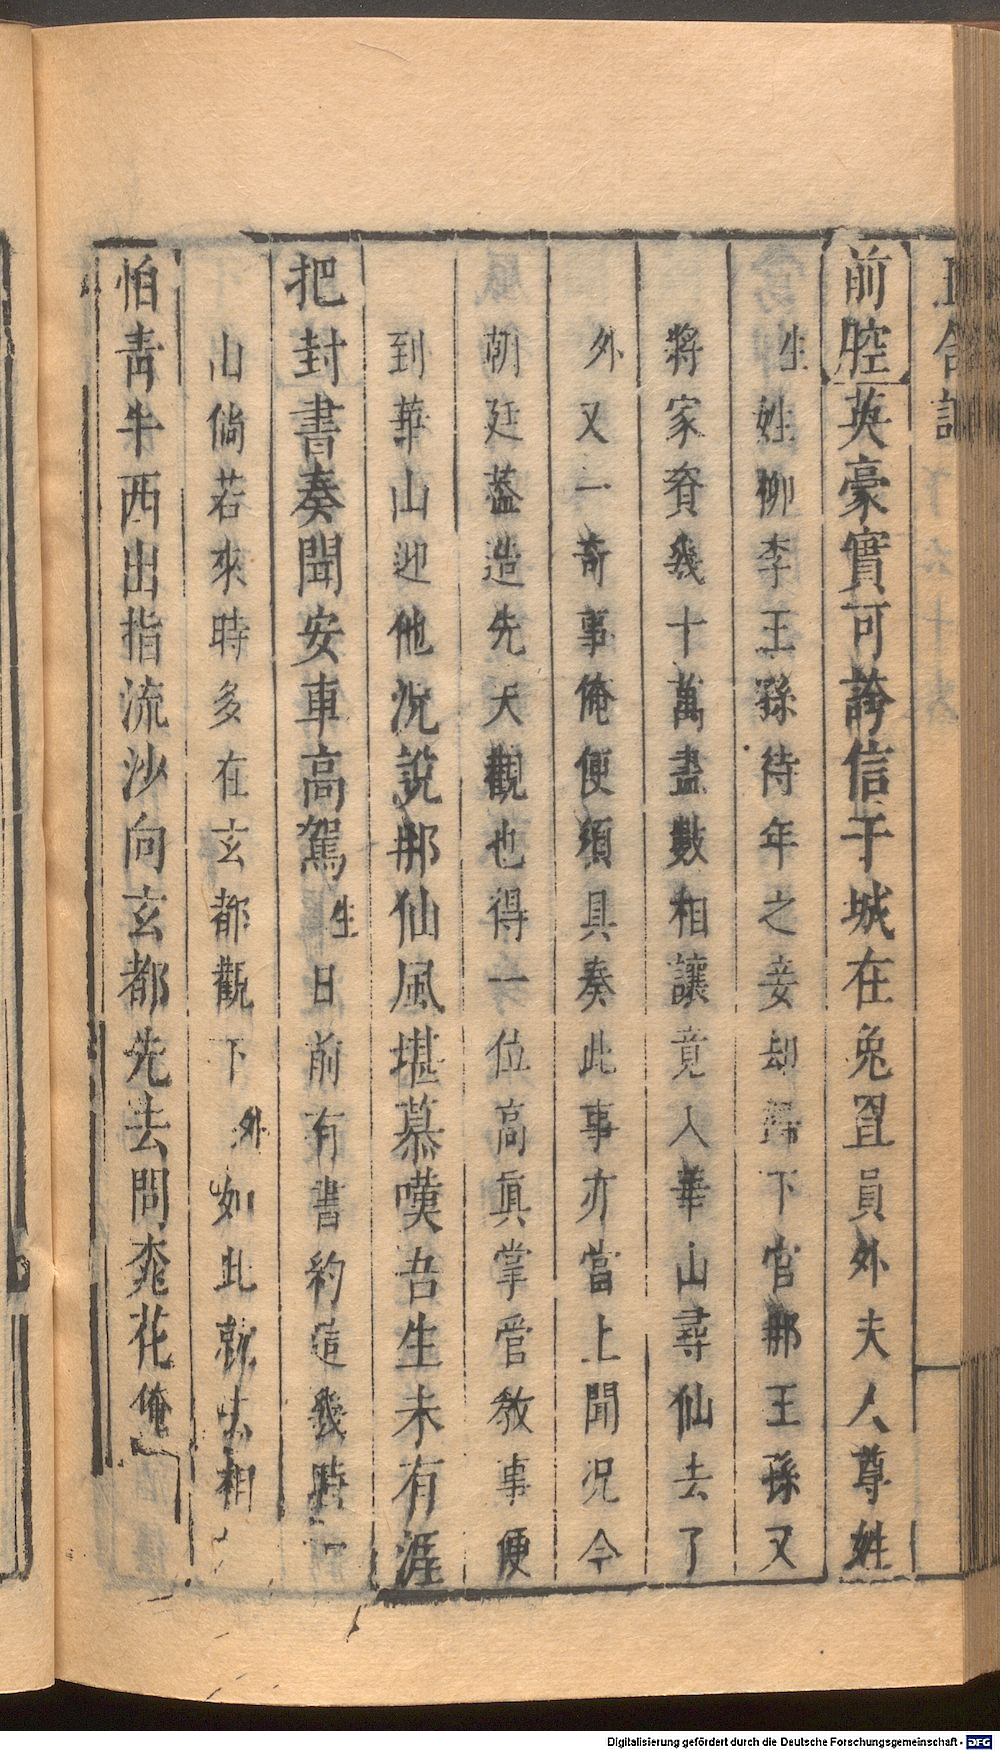 前腔英豪實可誇信于城在兔罝員外夫人尊姓
生姓柳李王孫待年之妾却歸下官那王孫又
將家資幾十萬盡數相讓竟入華山尋仙去了
外又一奇事俺便須具奏此事亦當上聞况今
朝廷蓋造先天觀也得一位高眞掌管教事便
到華山迎他况說那仙風堪慕嘆吾生未有涯
把封書奏聞安車高駕生日前有書約這幾時
山倘若來時多在玄都觀下外如此就去相
怕青牛西出指流沙向玄都先去問桃花俺
Digitalisierung gefördert durch die Deutsche Forschungsgemeinschaft - DFG